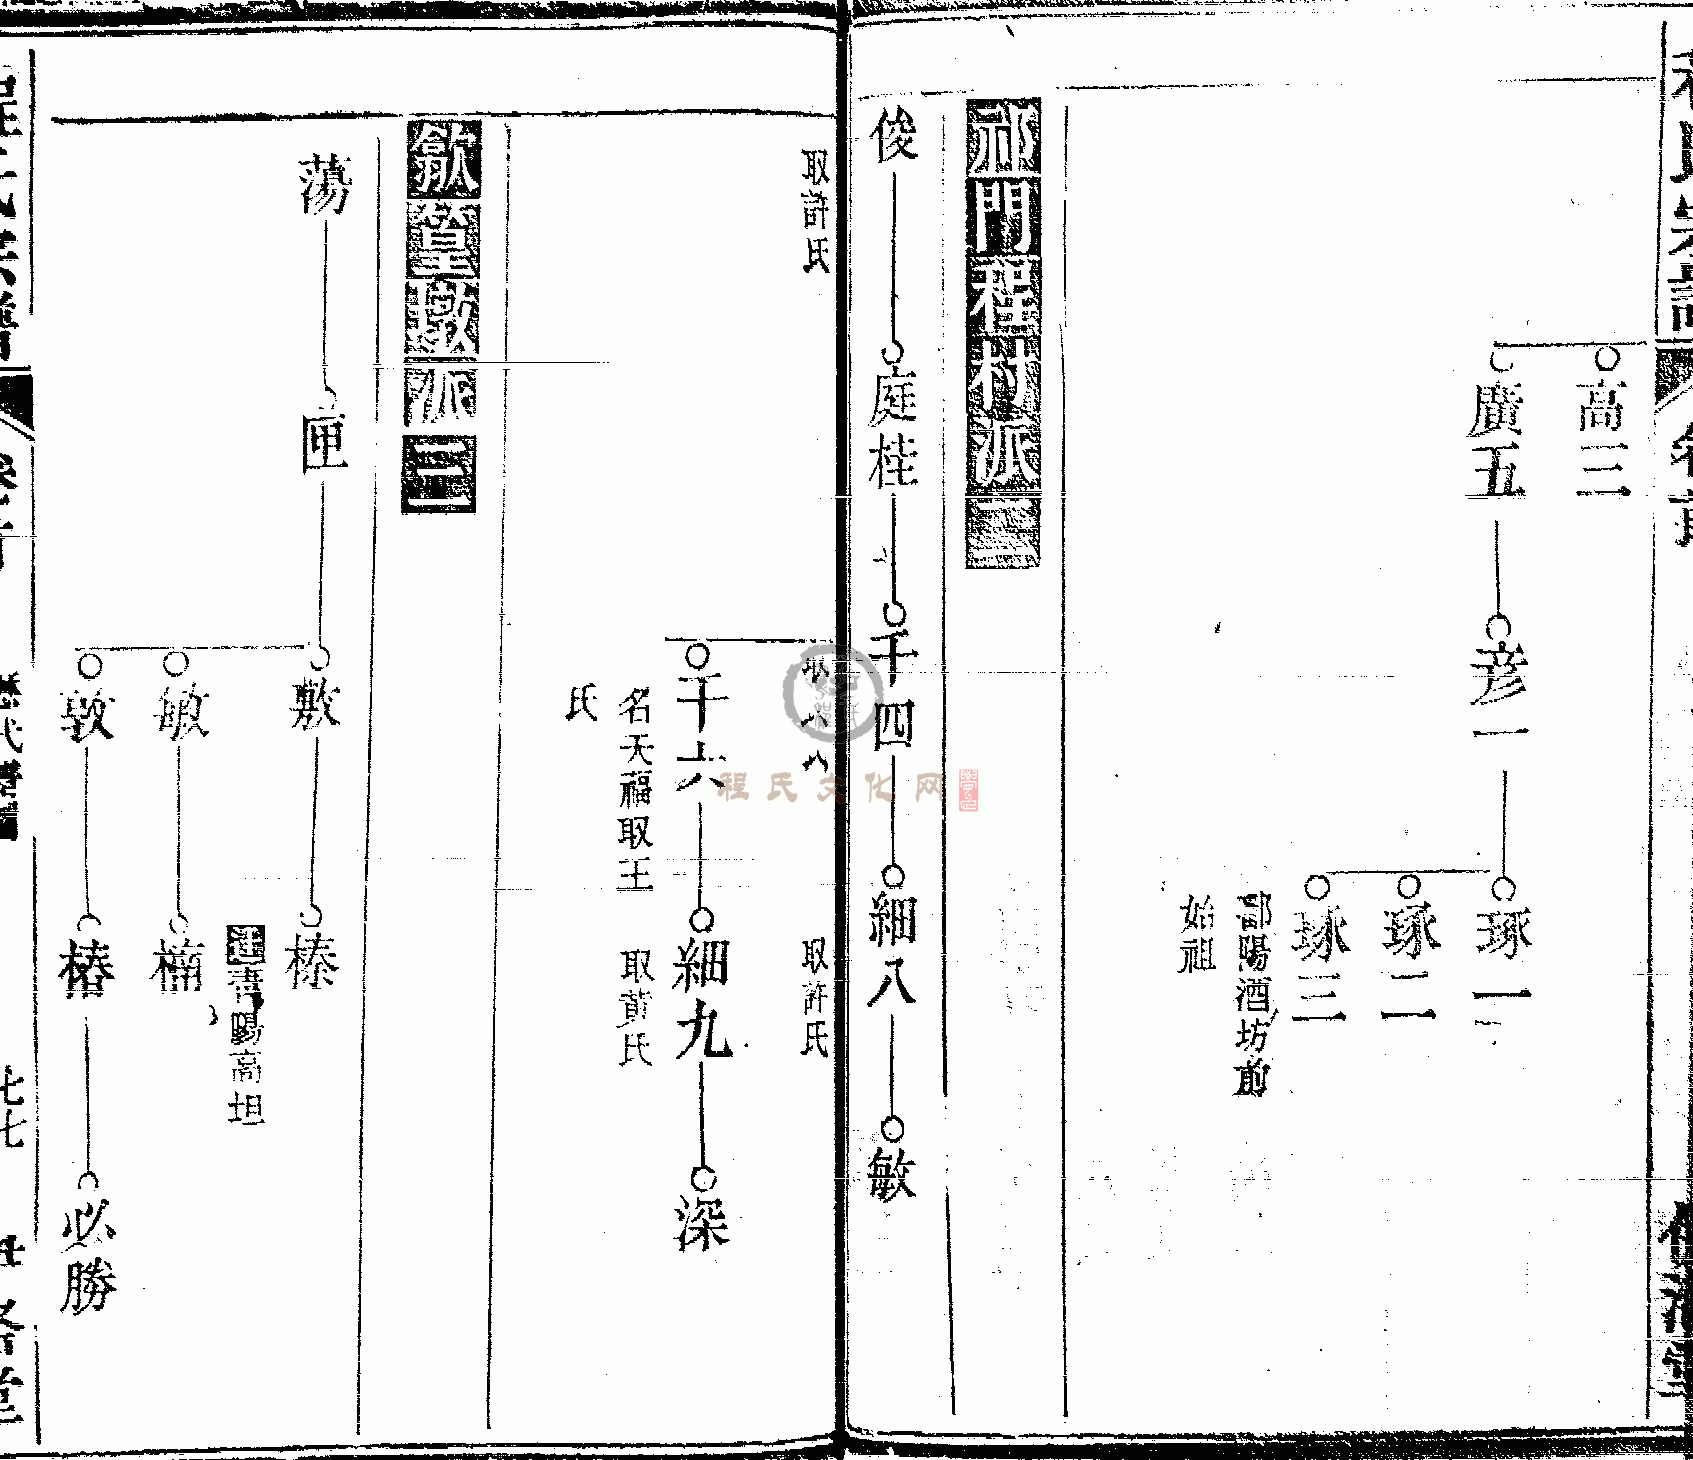 高三
廣五
彦一
琢一
琢二
琢三
鄱陽酒坊前
始祖
祁門程村派二
俊
庭桂
千四
細八
敏
取許氏
取許氏
千六
名天福取王
氏
細九
取黃氏
深
歙篁墩派三
蕩
匣
敷
榛
遷
陽高坦
敏
楠
敦
椿
必勝
歷代譜
七七
程氏文化网